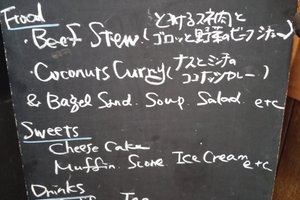 Food
・Beef Stew.(とろけるスネ肉と
ゴロッと野菜のビーフシチュー)
・Coconuts Curry(ナスとミンチの
ココナッツカレー)
& Bagel Sand. Soup. Salad. etc
Sweets
Cheese Cake
Muffin. Scone Ice Cream etc
Drinks
Tea